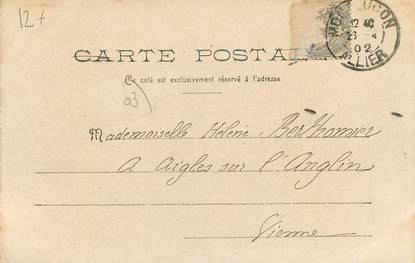 12+
MONTLUÇON
12 40
25 -4
02
ALLIER
CARTE POSTALE
Ce côté est exclusivement réservé à l'adresse
03
Mademoiselle Hélène Berthomier
A Aigles sur l'Anglin
Vienne